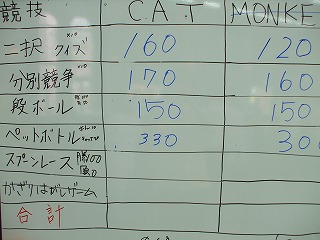 競技 C.A.T MONKE
二択クイズ 160 120
分別競争 170 160
段ボール 150 150
ペットボトル 330 30
スプーンレース 勝100 負0
かざりはがしゲーム
合計